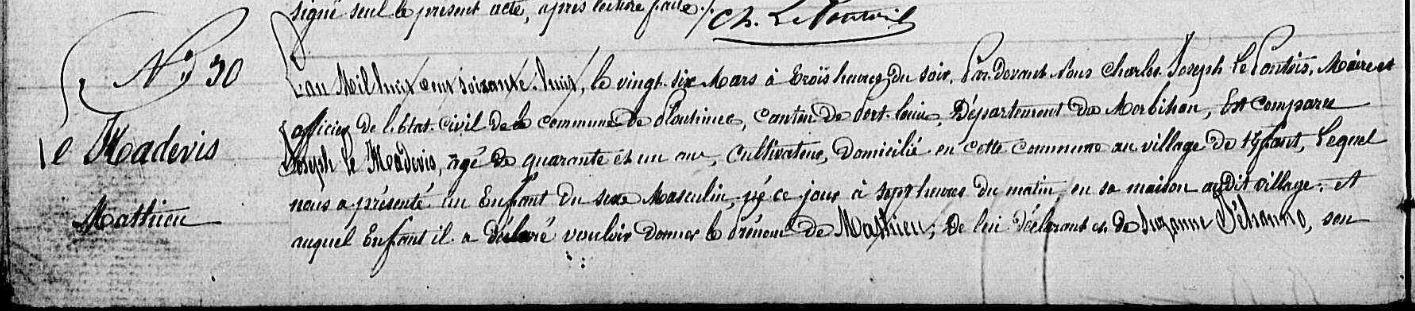 signé seul le présent acte, après lecture faite ./.
Ch. Le Pontois
N° 30
Le Madevis
Mathieu
L'an Mil huit cent soixante-huit, le vingt-six Mars à trois heures du soir, Par devant Nous Charles Joseph Le Pontois, Maire et
officier de l'Etat civil de la commune de Plouhinec, canton de Port-Louis, Département du Morbihan, Est comparu
Joseph Le Madevis, agé de quarante et un ans, Cultivateur, domicilié en cette commune au village de, Lequel
nous a présenté un Enfant du sexe Masculin, né ce jour à sept heures du matin en sa maison audit village, et
auquel Enfant il a déclaré vouloir donner le Prénom de Mathieu, De lui déclarant et de Suzanne Déhanno, son